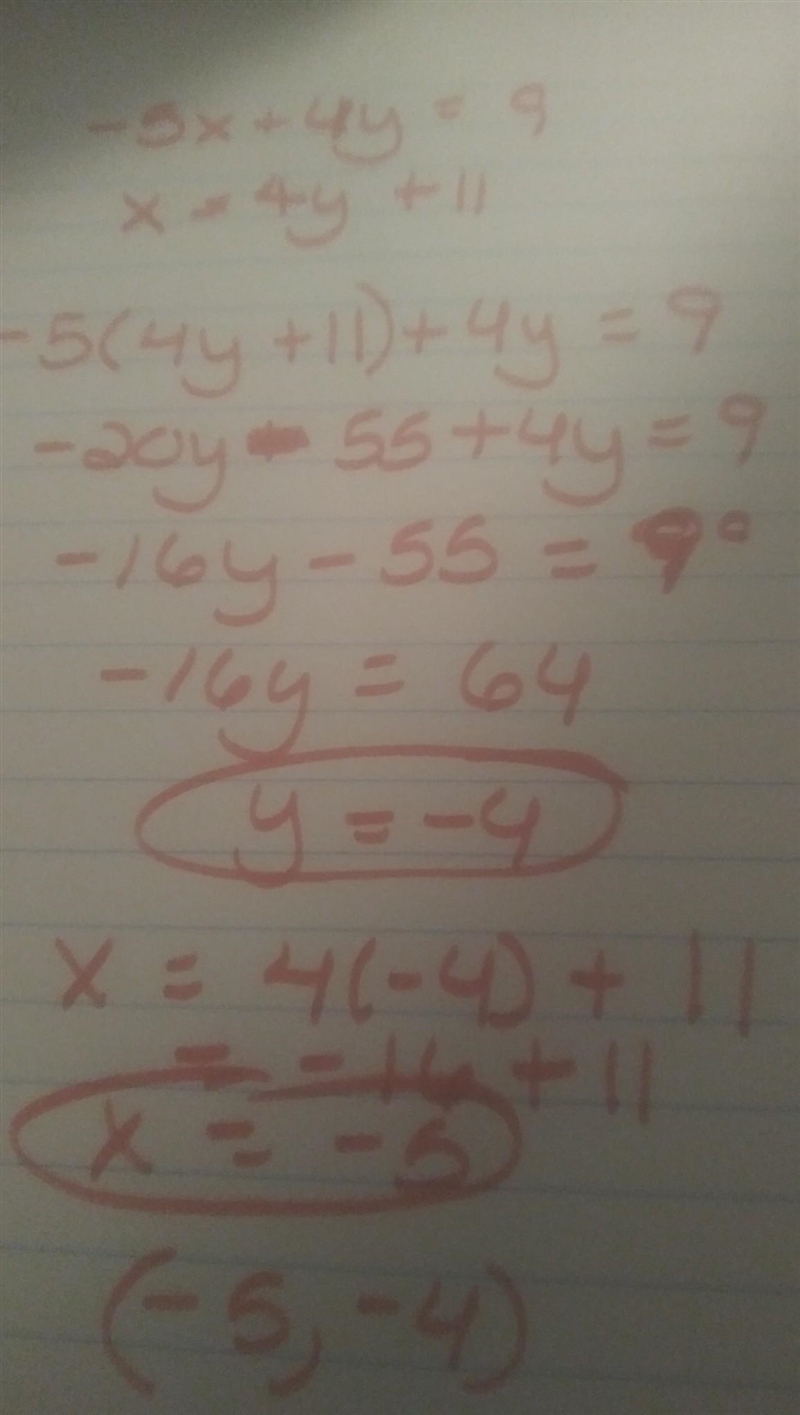 -5x + 4y = 9
x = 4y + 11
-5(4y + 11) + 4y = 9
-20y - 55 + 4y = 9
-16y - 55 = 9
-16y = 64
y = -4
x = 4(-4) + 11
= -16 + 11
x = -5
(-5, -4)